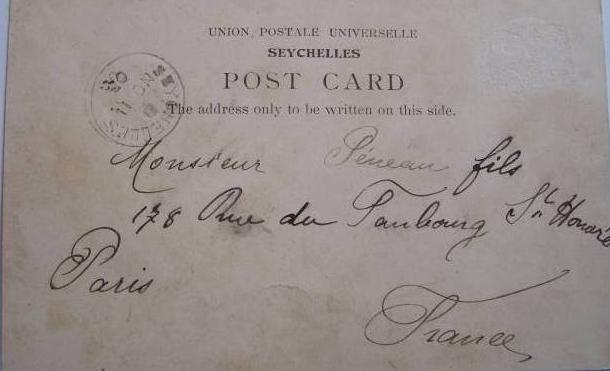 UNION, POSTALE UNIVERSELLE
SEYCHELLES
POST CARD
The address only to be written on this side.
SEYCHELLES
Monsieur Péneau fils
178 Rue du Faubourg St Honoré
Paris
France